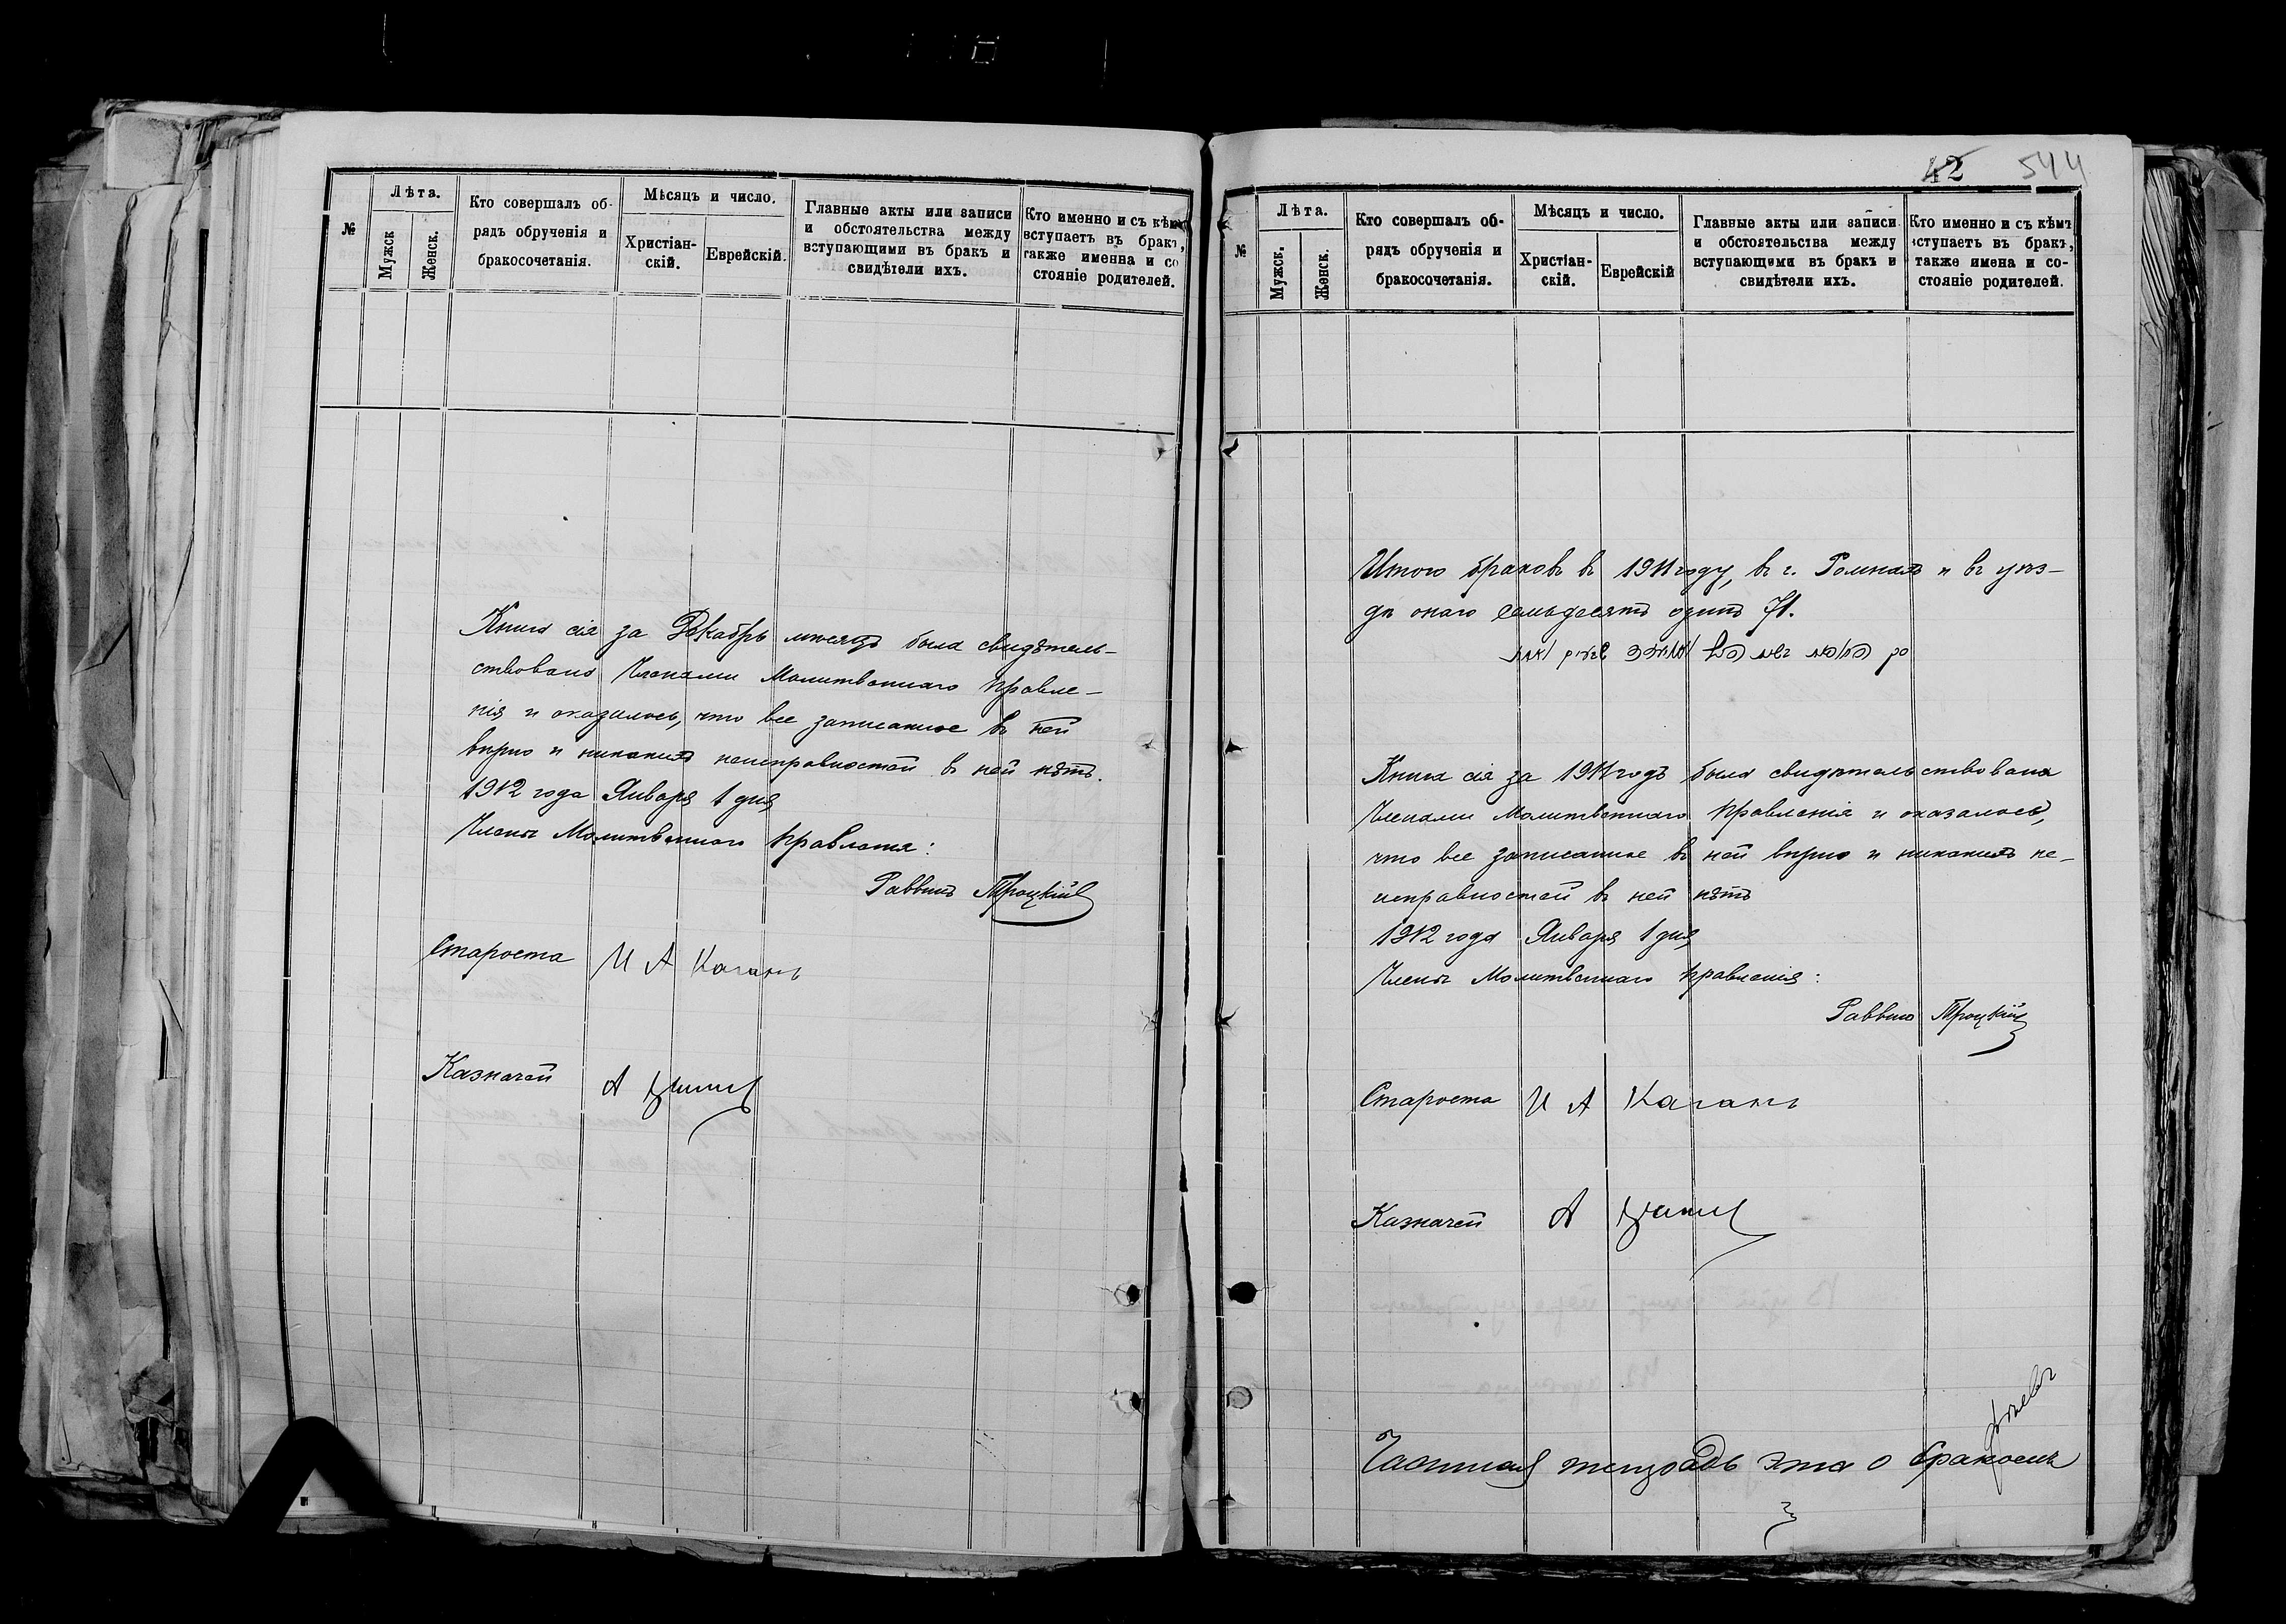 №
Лѣта.
Мужск
Женск.
Кто совершалъ об-
рядъ обрученія и
бракосочетанія.
Мѣсяцъ и число.
Христіан-
скій.
Еврейскій.
Главные акты или записи
и обстоятельства между
вступающими въ бракъ и
свидѣтели ихъ.
Кто именно и съ кѣмъ
вступаетъ въ бракъ,
также именна и со
стояніе родителей.
Книга сія за Декабрь мѣсяцъ была свидѣтель-
ствована Членами Молитвеннаго Правле-
нія и оказалось, что все записанное въ ней
вѣрно и никакихъ неисправностей въ ней нѣтъ.
1912 года Января 1 дня
Члены Молитвеннаго Правленія:
Раввинъ Троцкій
Староста И А Каганъ
Казначей А
42 544
№
Лѣта.
Мужск.
Женск.
Кто совершалъ об-
рядъ обрученія и
бракосочетанія.
Мѣсяцъ и число.
Христіан-
скій.
Еврейскій
Главные акты или записи
и обстоятельства между
вступающими въ бракъ и
свидѣтели ихъ.
Кто именно и съ кѣмъ
вступаетъ въ бракъ,
также имена и со-
стояніе родителей.
Итого браковъ въ 1911 году, въ г. Ромнахъ и въ уѣз-
дѣ онаго семьдесятъ одинъ 71.
Книга сія за 1911 годъ была свидѣтельствована
Членами Молитвеннаго Правленія и оказалось,
что все записанное въ ней вѣрно и никакихъ не-
исправностей въ ней нѣтъ
1912 года Января 1 дня
Члены Молитвеннаго Правленія:
Раввинъ Троцкій
Староста И А Каганъ
Казначей А
тетрадь эта о